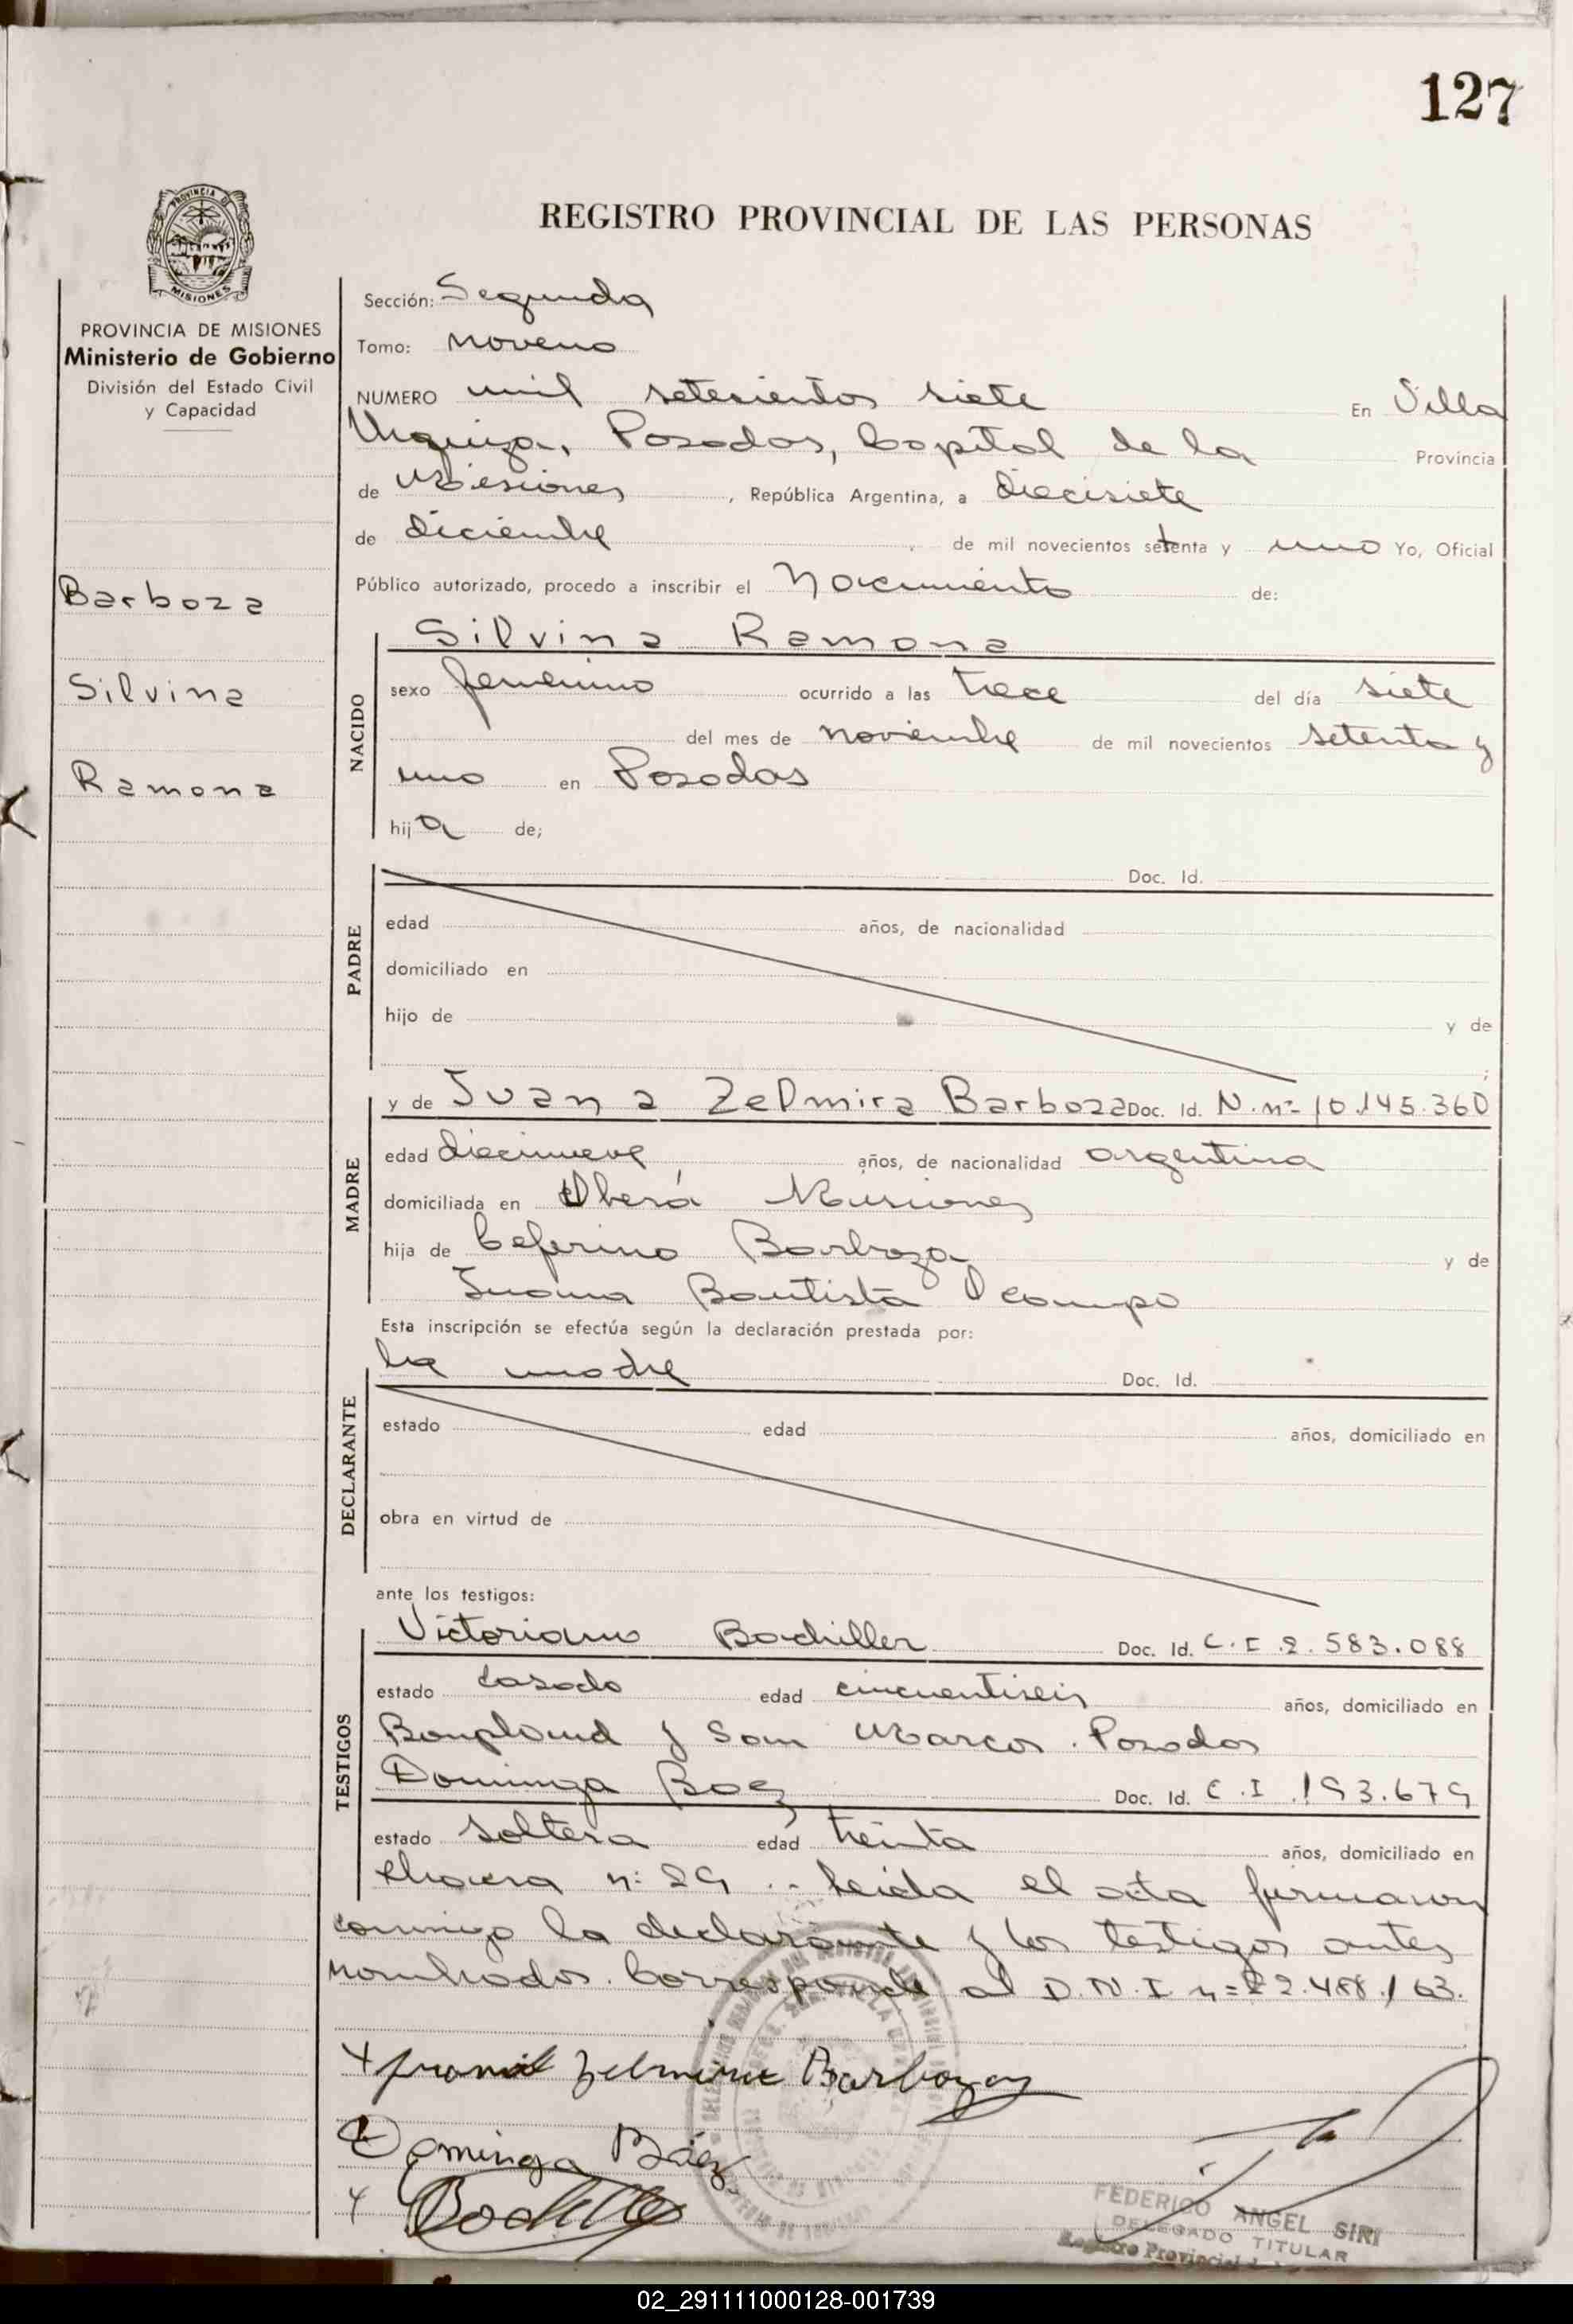 127
REGISTRO PROVINCIAL DE LAS PERSONAS
PROVINCIA DE
MISIONES
PROVINCIA DE MISIONES
Ministerio de Gobierno
División del Estado Civil
y Capacidad
Barboza
Silvina
Ramona
Sección: Segunda
Tomo: Noveno
NUMERO mil setecientos siete En Villa
Urquiza, Posadas, Capital de la Provincia
de Misiones, República Argentina, a diecisiete
de diciembre de mil novecientos setenta y uno Yo, Oficial
Público autorizado, procedo a inscribir el Nacimiento de:
NACIDO
Silvina Ramona
sexo femenino ocurrido a las trece del día siete
del mes de noviembre de mil novecientos setenta y
uno en Posadas
hija de;
PADRE
Doc. Id.
edad años, de nacionalidad
domiciliado en
hijo de y de
;
MADRE
y de Juana Zelmira Barboza Doc. Id. N. nº 10.145.360
edad diecinueve años, de nacionalidad argentina
domiciliada en Oberá Misiones
hija de Ceferino Barboza y de
Juana Bautista Ocampo
Esta inscripción se efectúa según la declaración prestada por:
DECLARANTE
la madre Doc. Id.
estado edad años, domiciliado en
obra en virtud de
ante los testigos:
TESTIGOS
Victoriano Bachiller Doc. Id. C.I. 2.583.088
estado casado edad cincuentiseis años, domiciliado en
Bonpland y San Marcos. Posadas
Dominga Baez Doc. Id. C.I. 193.679
estado soltera edad treinta años, domiciliado en
chacra nº 29 .. Leida el acta firmaron
conmigo la declarante y los testigos antes
nombrados. Corresponde al D.N.I. nº
Juana Zelmira Barboza
Dominga Báez
FEDERICO ANGEL SIRI
DELEGADO TITULAR
Registro Provincial
02_291111000128-001739